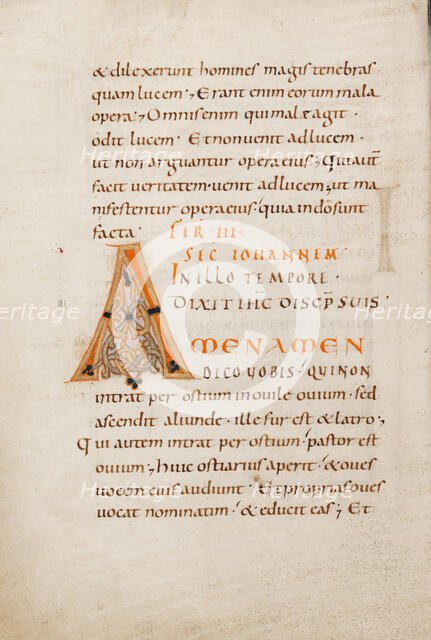 & dilexerunt homines magis tenebras
quam lucem; Erant enim eorum mala
opera; Omnis enim qui male agit
odit lucem · Et non venit ad lucem ·
ut non arguantur opera eius; Qui aut̄
facit veritatem · venit ad lucem; ut ma
nifestentur opera eius · quia in dō sunt
facta · FER · III ·
SEC IOHANNEM
IN ILLO TEMPORE ·
DIXIT IHC DISCP̄ SUIS ·
AMEN AMEN
DICO VOBIS · QUI NON
intrat per ostium in ovile ovium · sed
ascendit aliunde · ille fur est & latro;
Qui autem intrat per ostium · pastor est
ovium; huic ostiarius aperit · & oves
vocem eius audiunt · Et proprias oves
vocat nominatim · & educit eas; Et
Heritage
Heritage
Heritage
Heritage
Heritage
Heritage